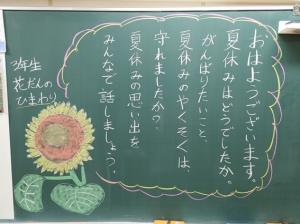 おはようございます。
夏休みはどうでしたか。
がんばりたいこと、
夏休みのやくそくは、
守れましたか？
夏休みの思い出を
みんなで話しましょう。
3年生
花だんの
ひまわり